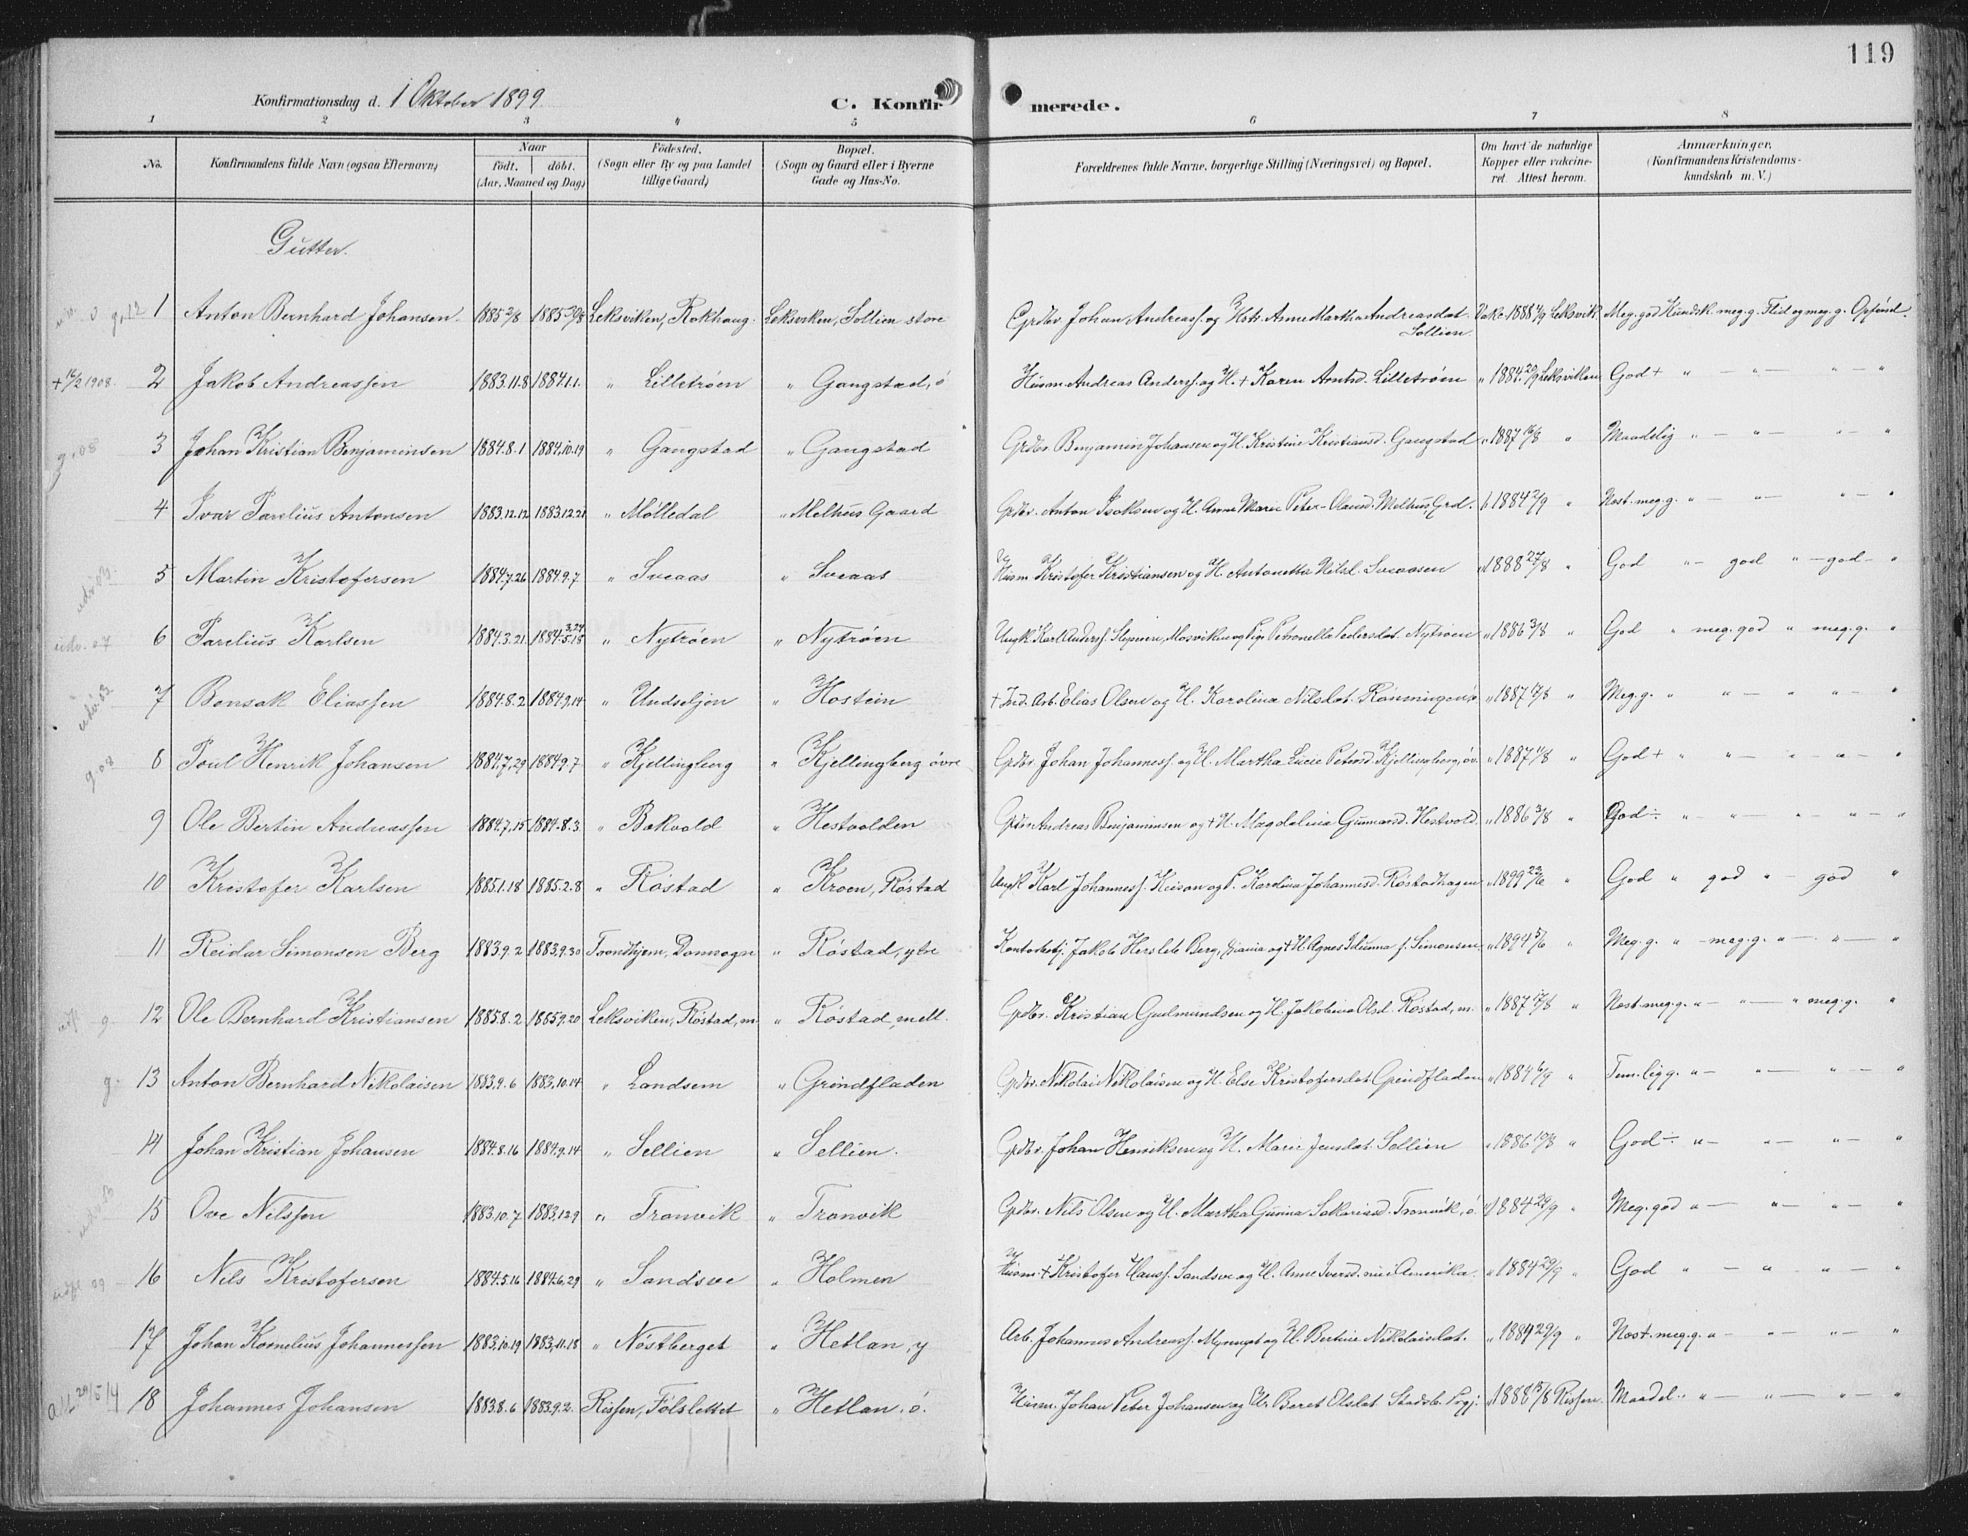 119
Konfirmationsdag d. 1 Oktober 1899 C. Konfirmerede.
1 2 3 4 5 6 7 8
No. Konfirmandens fulde Navn (ogsaa Efternavn) Naar født. døbt. (Aar, Maaned og Dag) Fødested. (Sogn eller By og paa Landet tillige Gaard) Bopæl. (Sogn og Gaard eller i Byerne Gade og Hus-No. Forældrenes fulde Navne, borgerlige Stilling (Næringsvei) og Bopæl. Om havt de naturlige Kopper eller vakcineret. Attest herom. Anmærkninger. (Konfirmandens Kristendomskundskab m. V.)
Gutter.
1 Anton Bernhard Johansen. 1885 2/8 1885 30/8 Leksviken, Rokhaug. Leksviken, Sollien store Grdbr. Johan Andreass. og Hstr. Anne Martha Andreasdat. Sollien. Vakc. 1888 Leksvik. Meg. god Kundsk. meg. g. Flid og meg. g. Opførsl.
+ 16/2 1908. 2 Jakob Andreassen 1883.11.8 1884.1.1. " Lilletrøen " Gangstad, ø Husm. Andreas Anderss. og H. + Karen Arntsd. Lilletrøen " 1884 20/9 Leksviken God + " — " — " — "
g. 08 3 Johan Kristian Benjaminsen 1884.8.1 1884.10.19 " Gangstad " Gangstad Grdbr. Benjamin Johansen og H. Kristine Kristiansd. Gangstad " 1887 16/8 " Maadelig " — " — " — "
4 Ivar Parelius Antonsen 1883.12.12 1883.12.21 " Mølledal " Melhus Gaard Grdbr. Anton Isaksen og H. Anne Marie Peter-Olausd. Melhus, Grd. 1884 2/9 " Nest. meg. g. " — " — " — "
udv. 03. 5 Martin Kristofersen 1884.7.26 1884.9.7 " Sveaas " Sveaas Husm. Kristofer Kristiansen og H. Antonetta Nilsd. Sveaasen " 1888 27/8 " God " — god " — god — "
udv. 07 6 Parelius Karlsen 1884.3.21 1884.5.18 " Nytrøen " Nytrøen Ungk. Karl Anderss. Mosviken og Pige Petronella Pedersdat. Nytrøen " 1886 3/8 " God " meg. god " meg. g. "
udv. 03 7 Bensak Eliassen 1884.8.2 1884.9.14 " Undseljen " Hostein + Ind. Arb. Elias Olsen og H. Karolina Nilsdat. " 1887 17/8 " Meg. g. " " — " " — "
g. 08 8 Poul Henrik Johansen 1884.7.29 1884.9.7 " Kjellingberg " Kjellingberg øvre Grdbr. Johan Johanness. og H. Martha Lucie Petersd. Kjellingberg, øv. " 1887 " God + " " — " — " — "
9 Ole Bertin Andreassen 1884.7.15 1884.8.3 " Bakvold " Hestvolden Grdbr. Andreas Benjaminsen og + H. Magdalena Gunnarsd. Hestvold. " 1886 3/8 " God ÷ " — " — " — "
10 Kristofer Karlsen 1885.1.18 1885.2.8 " Røstad " Kroen, Røstad Ungk. Karl Johanness. og P. Karolina Johannesd. Røstadhagen " 1899 23/6 " God " god " — god "
11 Reidar Simonsen Berg 1883.9.2 1883.9.30 Trondhjem, Domsogn " Røstad, ytre Kontorbetj. Jakob Herslete Berg, og + H. Agnes f. Simonsen " 1894 5/6 " Meg. g. " — meg. g. " — " — "
g. 12 Ole Bernhard Kristiansen 1885.8.2 1885.9.20 Leksviken, Røstad, m. " Røstad, mell. Grdbr. Kristian Gudmundsen og H. Jakobina Olsd. Røstad, m. " 1887 17/8 " Nest. meg. g. " — " — " meg. g. "
g. 13 Anton Bernhard Nikolaisen 1883.9.6 1883.10.14 " Landsem " Grindfladen Grdbr. Nikolai Nikolaisen og H. Else Kristofersdat. Grindfladen " 1884 6/9 " Tem.lig g. " — " — " — "
14 Johan Kristian Johansen 1884.8.16 1884.9.14 " Sellien " Sellien. Grdbr. Johan Henriksen og H. Marie Jensdat. Sellien " 1886 " God ÷ " — " — " — "
15 Ove Nilssen 1883.10.7 1883.12.9 " Tranvik " Tranvik Grdbr. Nils Olsen og H. Martha Gurina Sakariasd. Tranvik, ø " 1884 29/9 " Meg. god " — " — " — "
16 Nils Kristofersen 1884.5.16 1884.6.29 " Sandsve " Holmen Husm. + Kristofer Hanss. Sandsve og H. Anne Iversd. nu i Amerika. " 1884 29/9 " God " — " " — "
17 Johan Kornelius Johannessen 1883.10.19 1883.11.18 " Nøstberget " Hetlan, y Arb. Johannes Andreass. og H. Bertine Nikolaisdat. " 1884 29/9 " Nest. meg. g. " — " — " — "
29/5 14 18 Johannes Johansen 1883.8.6 1883.9.2. Rissen, Følslettet " Hetlan. ø. Husm. Johan Peter Johansen og Beret Olsdat. " 1888 15/8 Rissen. Maadel. " — " — " — "